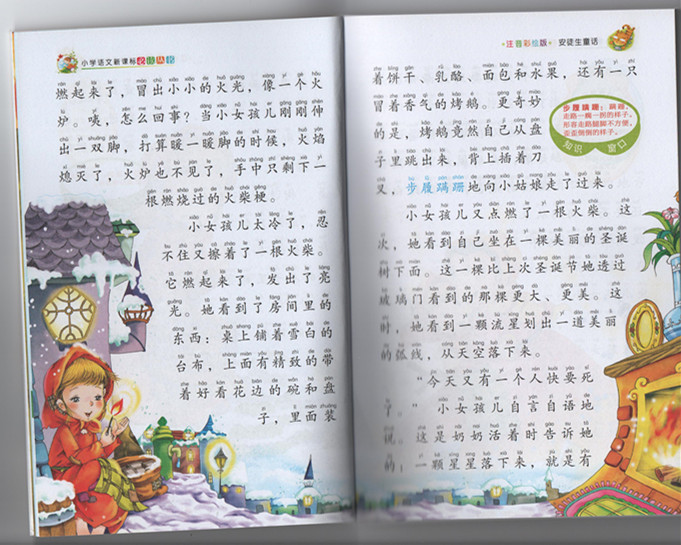 小学语文新课标必读丛书
燃起来了，冒出小小的火光，像一个火
炉。咦，怎么回事？当小女孩儿刚刚伸
出一双脚，打算暖一暖脚的时候，火焰
熄灭了，火炉也不见了，手中只剩下一
根燃烧过的火柴梗。
小女孩儿太冷了，忍
不住又擦着了一根火柴。
它燃起来了，发出了亮
光。她看到了房间里的
东西：桌上铺着雪白的
台布，上面有精致的带
着好看花边的碗和盘
子，里面装
注音彩绘版 安徒生童话
着饼干、乳酪、面包和水果，还有一只
冒着香气的烤鹅。更奇妙
的是，烤鹅竟然自己从盘
子里跳出来，背上插着刀
叉，步履蹒跚地向小姑娘走了过来。
步履蹒跚：蹒跚，
走路一瘸一拐的样子。
形容走路腿脚不方便，
歪歪倒倒的样子。
知识 窗口
小女孩儿又点燃了一根火柴。这
次，她看到自己坐在一棵美丽的圣诞
树下面。这一棵比上次圣诞节她透过
玻璃门看到的那棵更大、更美。这
时，她看到一颗流星划出一道美丽
的弧线，从天空落下来。
“今天又有一个人快要死
了。”小女孩儿自言自语地
说。这是奶奶活着时告诉她
的：一颗星星落下来，就是有